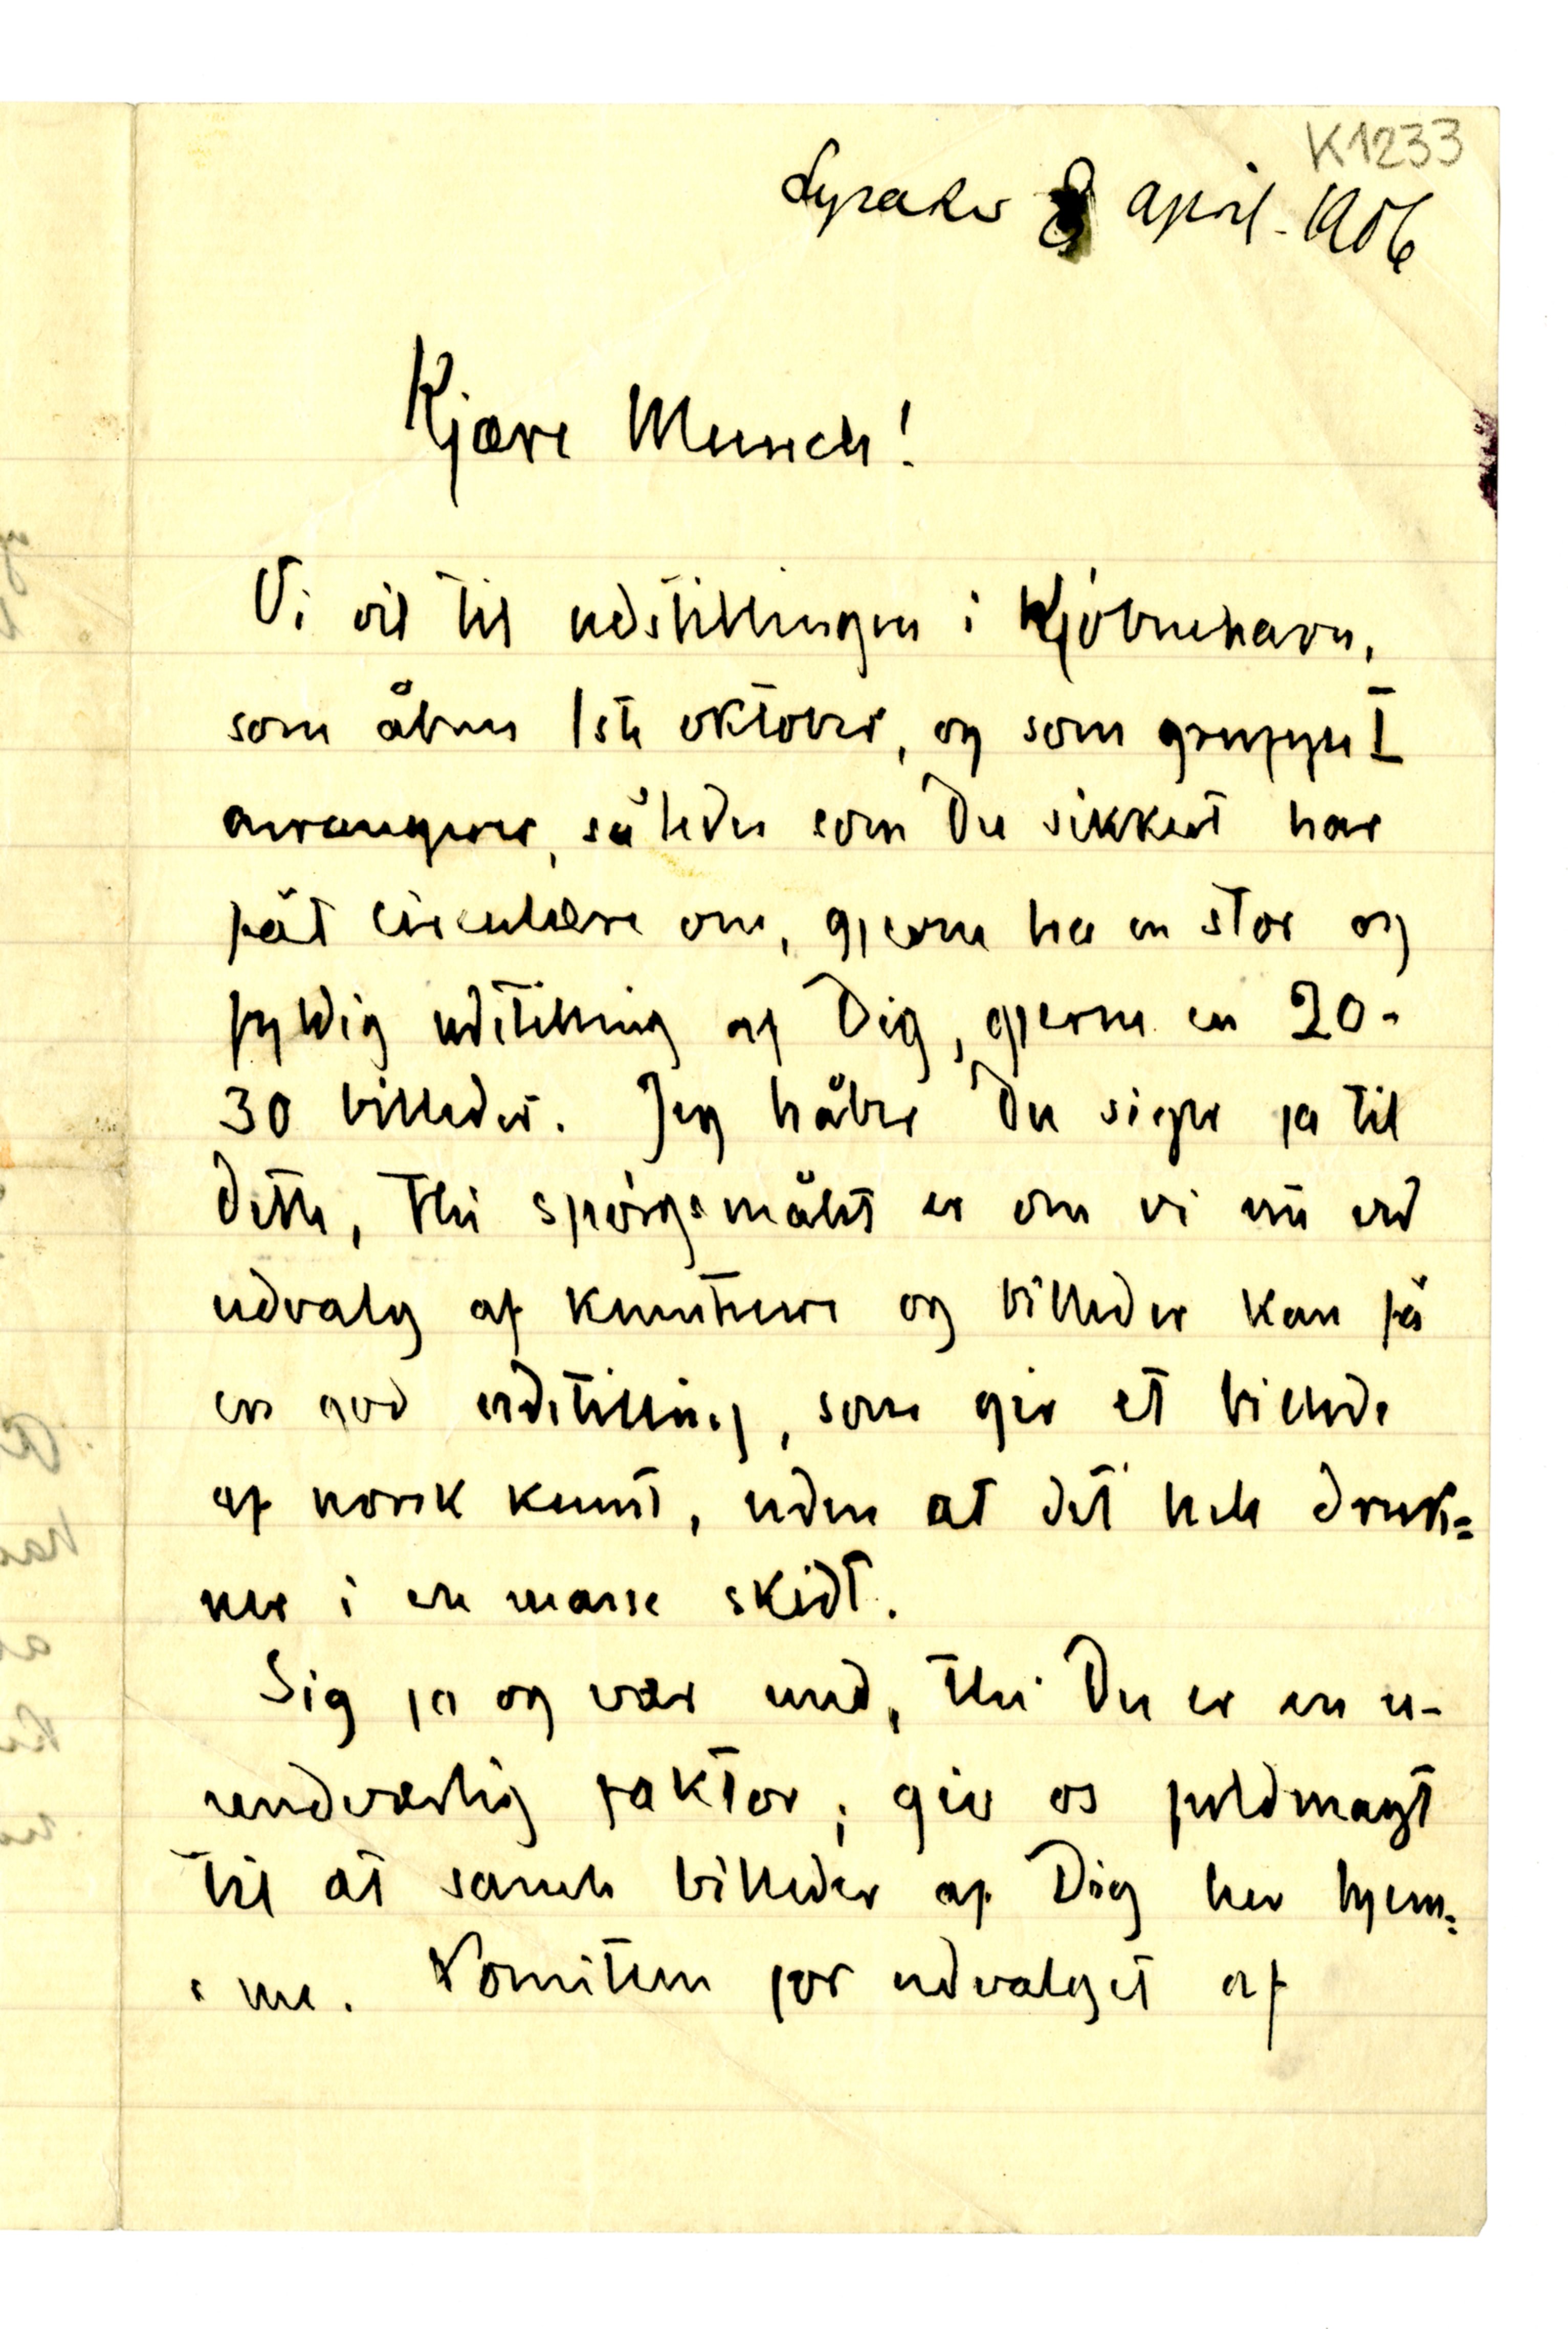 K1233
Lysaker 8 april. 1906
Kjære Munch!
Vi vil til udstillingen i Kjøbnehavn,
som åbnes 1ste oktober, og som gruppe I
arrangerer, således som Du sikkert har
fåt circulære om, gjerne ha en stor og
fyldig udstilling af Dig, gjerne en 20-
30 billeder. Jeg håber Du siger ja til
dette, thi spørgsmålet er om vi nu ved
udvalg af kunstnere og billeder kan få
en god udstilling, som gir et billede
af norsk kunst, uden at det hele druk=
ner i en masse skidt.
Sig ja og vær med, thi Du er en u-
undværlig faktor; giv os fuldmagt
til at samle billeder af Dig her hjem=
= me. Komiteen for udvalget af